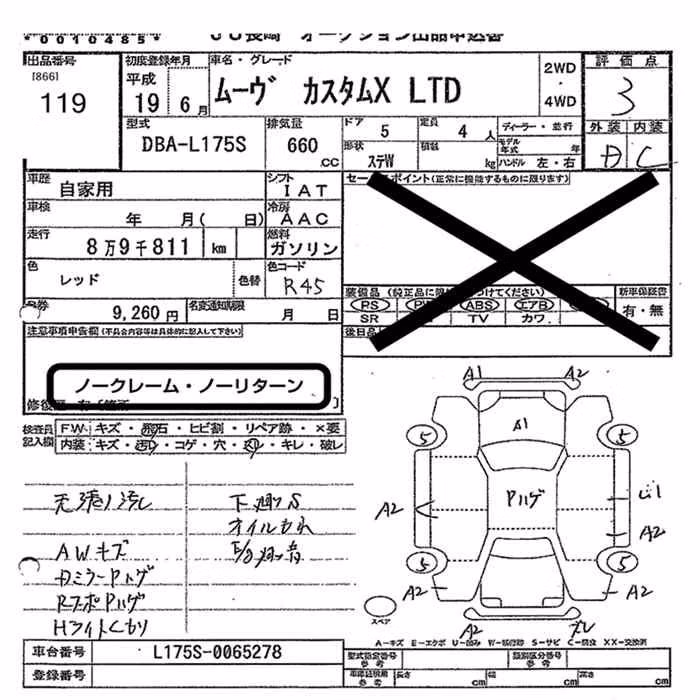 *0010485*
JU長崎 オークション出品申込書
出品番号
[866]
119
初度登録年月
平成
19 6月
車名・グレード
ムーヴ カスタムX LTD
2WD
・
4WD
評価点
3
外装 内装
D C
型式
DBA-L175S
排気量
660
CC
ドア 5
定員 4 人
形状 ステW
積載 kg
ディーラー・並行
モデル年式 年
ハンドル 左・右
車歴
自家用
シフト
IAT
車検
年 月( 日)
冷房
AAC
走行
8万9千811 km
燃料
ガソリン
色
レッド
色替
色コード
R45
9,260円
名変通知期限
月 日
セールスポイント(正常に機能するものに限ります)
PS PW ABS エアB
SR TV カワ
新車保証書
有・無
後日品
注意事項申告欄(不具合内容等は具体的に記入して下さい)
ノークレーム・ノーリターン
検査員
記入欄
FW キズ・飛石・ヒビ割・リペア跡・×要
内装 キズ・汚れ・コゲ・穴・スリ・キレ・破レ
天張り汚れ
下廻りS
オイルもれ
AWキズ
DミラーPハゲ
RスポPハゲ
Hライトくもり
A1 A2
5 A1 5
A2 Pハゲ
A2
5 5
A2 A2
A2
スペア
A-キズ E-エクボ U-凹み W-補修跡 S-サビ C-腐食 XX-交換済
車台番号 L175S-0065278
登録番号
型式指定番号
参考
類別区分番号
参考
長さ cm 幅 cm 高さ cm